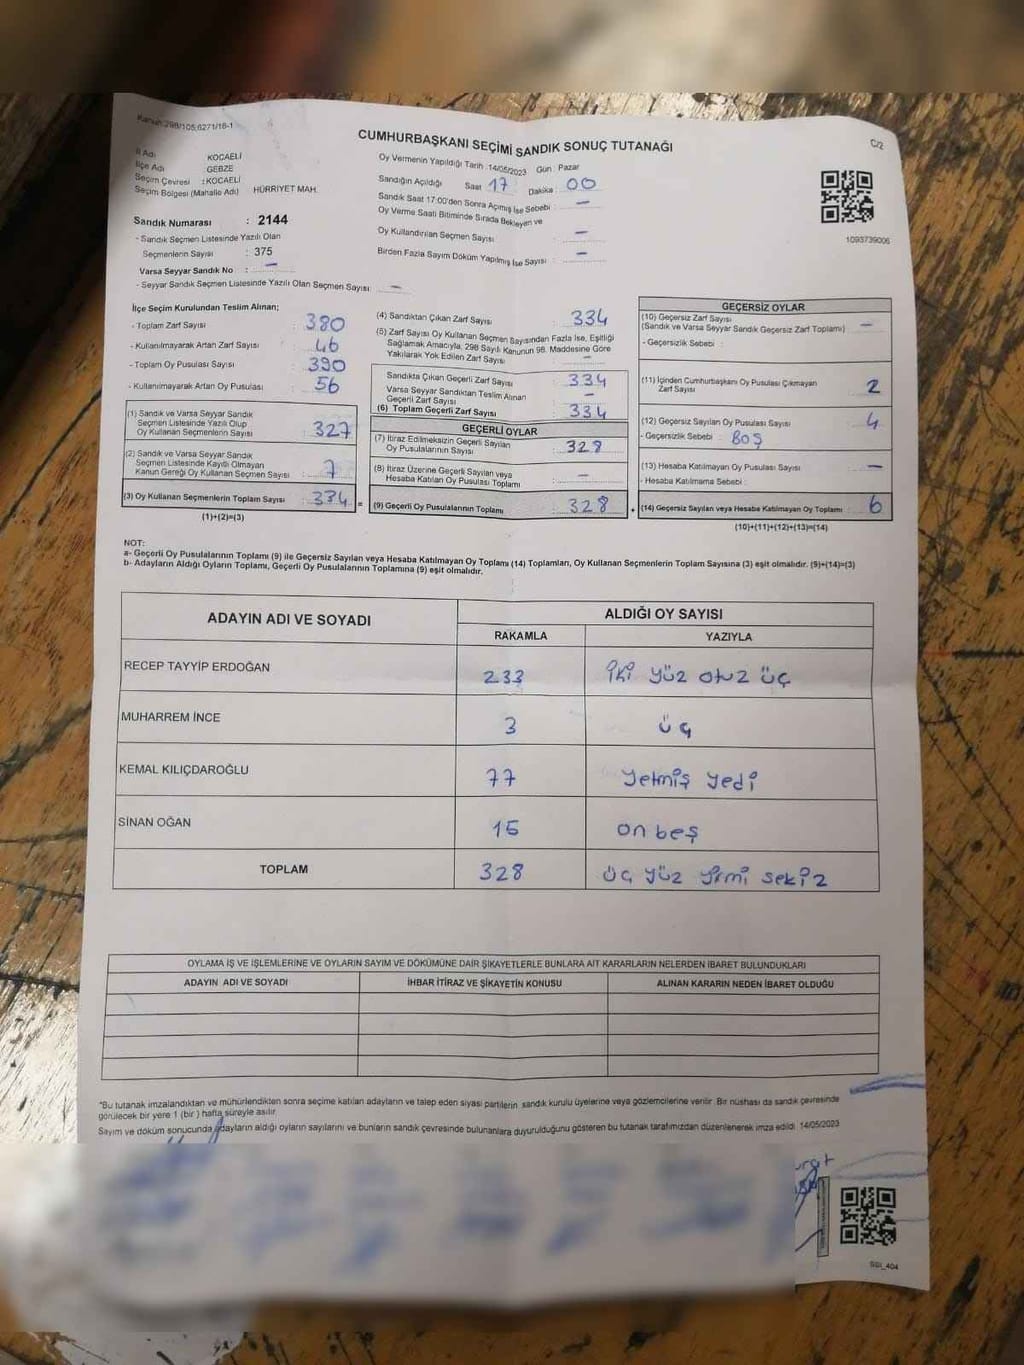 Kanun:298/105;6271/16-1
CUMHURBAŞKANI SEÇİMİ SANDIK SONUÇ TUTANAĞI
C/2
İl Adı KOCAELİ
İlçe Adı GEBZE
Seçim Çevresi : KOCAELİ
Seçim Bölgesi (Mahalle Adı) HÜRRİYET MAH.
Sandık Numarası : 2144
- Sandık Seçmen Listesinde Yazılı Olan
Seçmenlerin Sayısı : 375
Varsa Seyyar Sandık No : –
- Seyyar Sandık Seçmen Listesinde Yazılı Olan Seçmen Sayısı : –
Oy Vermenin Yapıldığı Tarih :14/05/2023 Gün : Pazar
Sandığın Açıldığı Saat 17 Dakika : 00
Sandık Saat 17:00'den Sonra Açılmış İse Sebebi : –
Oy Verme Saati Bitiminde Sırada Bekleyen ve
Oy Kullandırılan Seçmen Sayısı : –
Birden Fazla Sayım Döküm Yapılmış İse Sayısı : –
1093739006
İlçe Seçim Kurulundan Teslim Alınan;
- Toplam Zarf Sayısı : 380
- Kullanılmayarak Artan Zarf Sayısı : 46
- Toplam Oy Pusulası Sayısı : 390
- Kullanılmayarak Artan Oy Pusulası : 56
(1) Sandık ve Varsa Seyyar Sandık
Seçmen Listesinde Yazılı Olup
Oy Kullanan Seçmenlerin Sayısı : 327
(2) Sandık ve Varsa Seyyar Sandık
Seçmen Listesinde Kayıtlı Olmayan
Kanun Gereği Oy Kullanan Seçmen Sayısı : 7
(3) Oy Kullanan Seçmenlerin Toplam Sayısı : 334 =
(1)+(2)=(3)
(4) Sandıktan Çıkan Zarf Sayısı : 334
(5) Zarf Sayısı Oy Kullanan Seçmen Sayısından Fazla İse, Eşitliği
Sağlamak Amacıyla, 298 Sayılı Kanunun 98. Maddesine Göre
Yakılarak Yok Edilen Zarf Sayısı : –
Sandıkta Çıkan Geçerli Zarf Sayısı : 334
Varsa Seyyar Sandıktan Teslim Alınan
Geçerli Zarf Sayısı : –
(6) Toplam Geçerli Zarf Sayısı : 334
GEÇERLİ OYLAR
(7) İtiraz Edilmeksizin Geçerli Sayılan
Oy Pusulalarının Sayısı : 328
(8) İtiraz Üzerine Geçerli Sayılan veya
Hesaba Katılan Oy Pusulası Toplamı : –
(9) Geçerli Oy Pusulalarının Toplamı : 328 +
GEÇERSİZ OYLAR
(10) Geçersiz Zarf Sayısı
(Sandık ve Varsa Seyyar Sandık Geçersiz Zarf Toplamı) –
- Geçersizlik Sebebi :
(11) İçinden Cumhurbaşkanı Oy Pusulası Çıkmayan
Zarf Sayısı : 2
(12) Geçersiz Sayılan Oy Pusulası Sayısı : 4
- Geçersizlik Sebebi : BOŞ
(13) Hesaba Katılmayan Oy Pusulası Sayısı : –
- Hesaba Katılmama Sebebi :
(14) Geçersiz Sayılan veya Hesaba Katılmayan Oy Toplamı : 6
(10)+(11)+(12)+(13)=(14)
NOT:
a- Geçerli Oy Pusulalarının Toplamı (9) ile Geçersiz Sayılan veya Hesaba Katılmayan Oy Toplamı (14) Toplamları, Oy Kullanan Seçmenlerin Toplam Sayısına (3) eşit olmalıdır. (9)+(14)=(3)
b- Adayların Aldığı Oyların Toplamı, Geçerli Oy Pusulalarının Toplamına (9) eşit olmalıdır.
ADAYIN ADI VE SOYADI ALDIĞI OY SAYISI
RAKAMLA YAZIYLA
RECEP TAYYİP ERDOĞAN 233 iki yüz otuz üç
MUHARREM İNCE 3 üç
KEMAL KILIÇDAROĞLU 77 yetmiş yedi
SİNAN OĞAN 15 on beş
TOPLAM 328 üç yüz yirmi sekiz
OYLAMA İŞ VE İŞLEMLERİNE VE OYLARIN SAYIM VE DÖKÜMÜNE DAİR ŞİKAYETLERLE BUNLARA AİT KARARLARIN NELERDEN İBARET BULUNDUKLARI
ADAYIN ADI VE SOYADI İHBAR İTİRAZ VE ŞİKAYETİN KONUSU ALINAN KARARIN NEDEN İBARET OLDUĞU
*Bu tutanak imzalandıktan ve mühürlendikten sonra seçime katılan adayların ve talep eden siyasi partilerin sandık kurulu üyelerine veya gözlemcilerine verilir. Bir nüshası da sandık çevresinde
görülecek bir yere 1 (bir) hafta süreyle asılır.
Sayım ve döküm sonucunda adayların aldığı oyların sayılarını ve bunların sandık çevresinde bulunanlara duyurulduğunu gösteren bu tutanak tarafımızdan düzenlenerek imza edildi. 14/05/2023